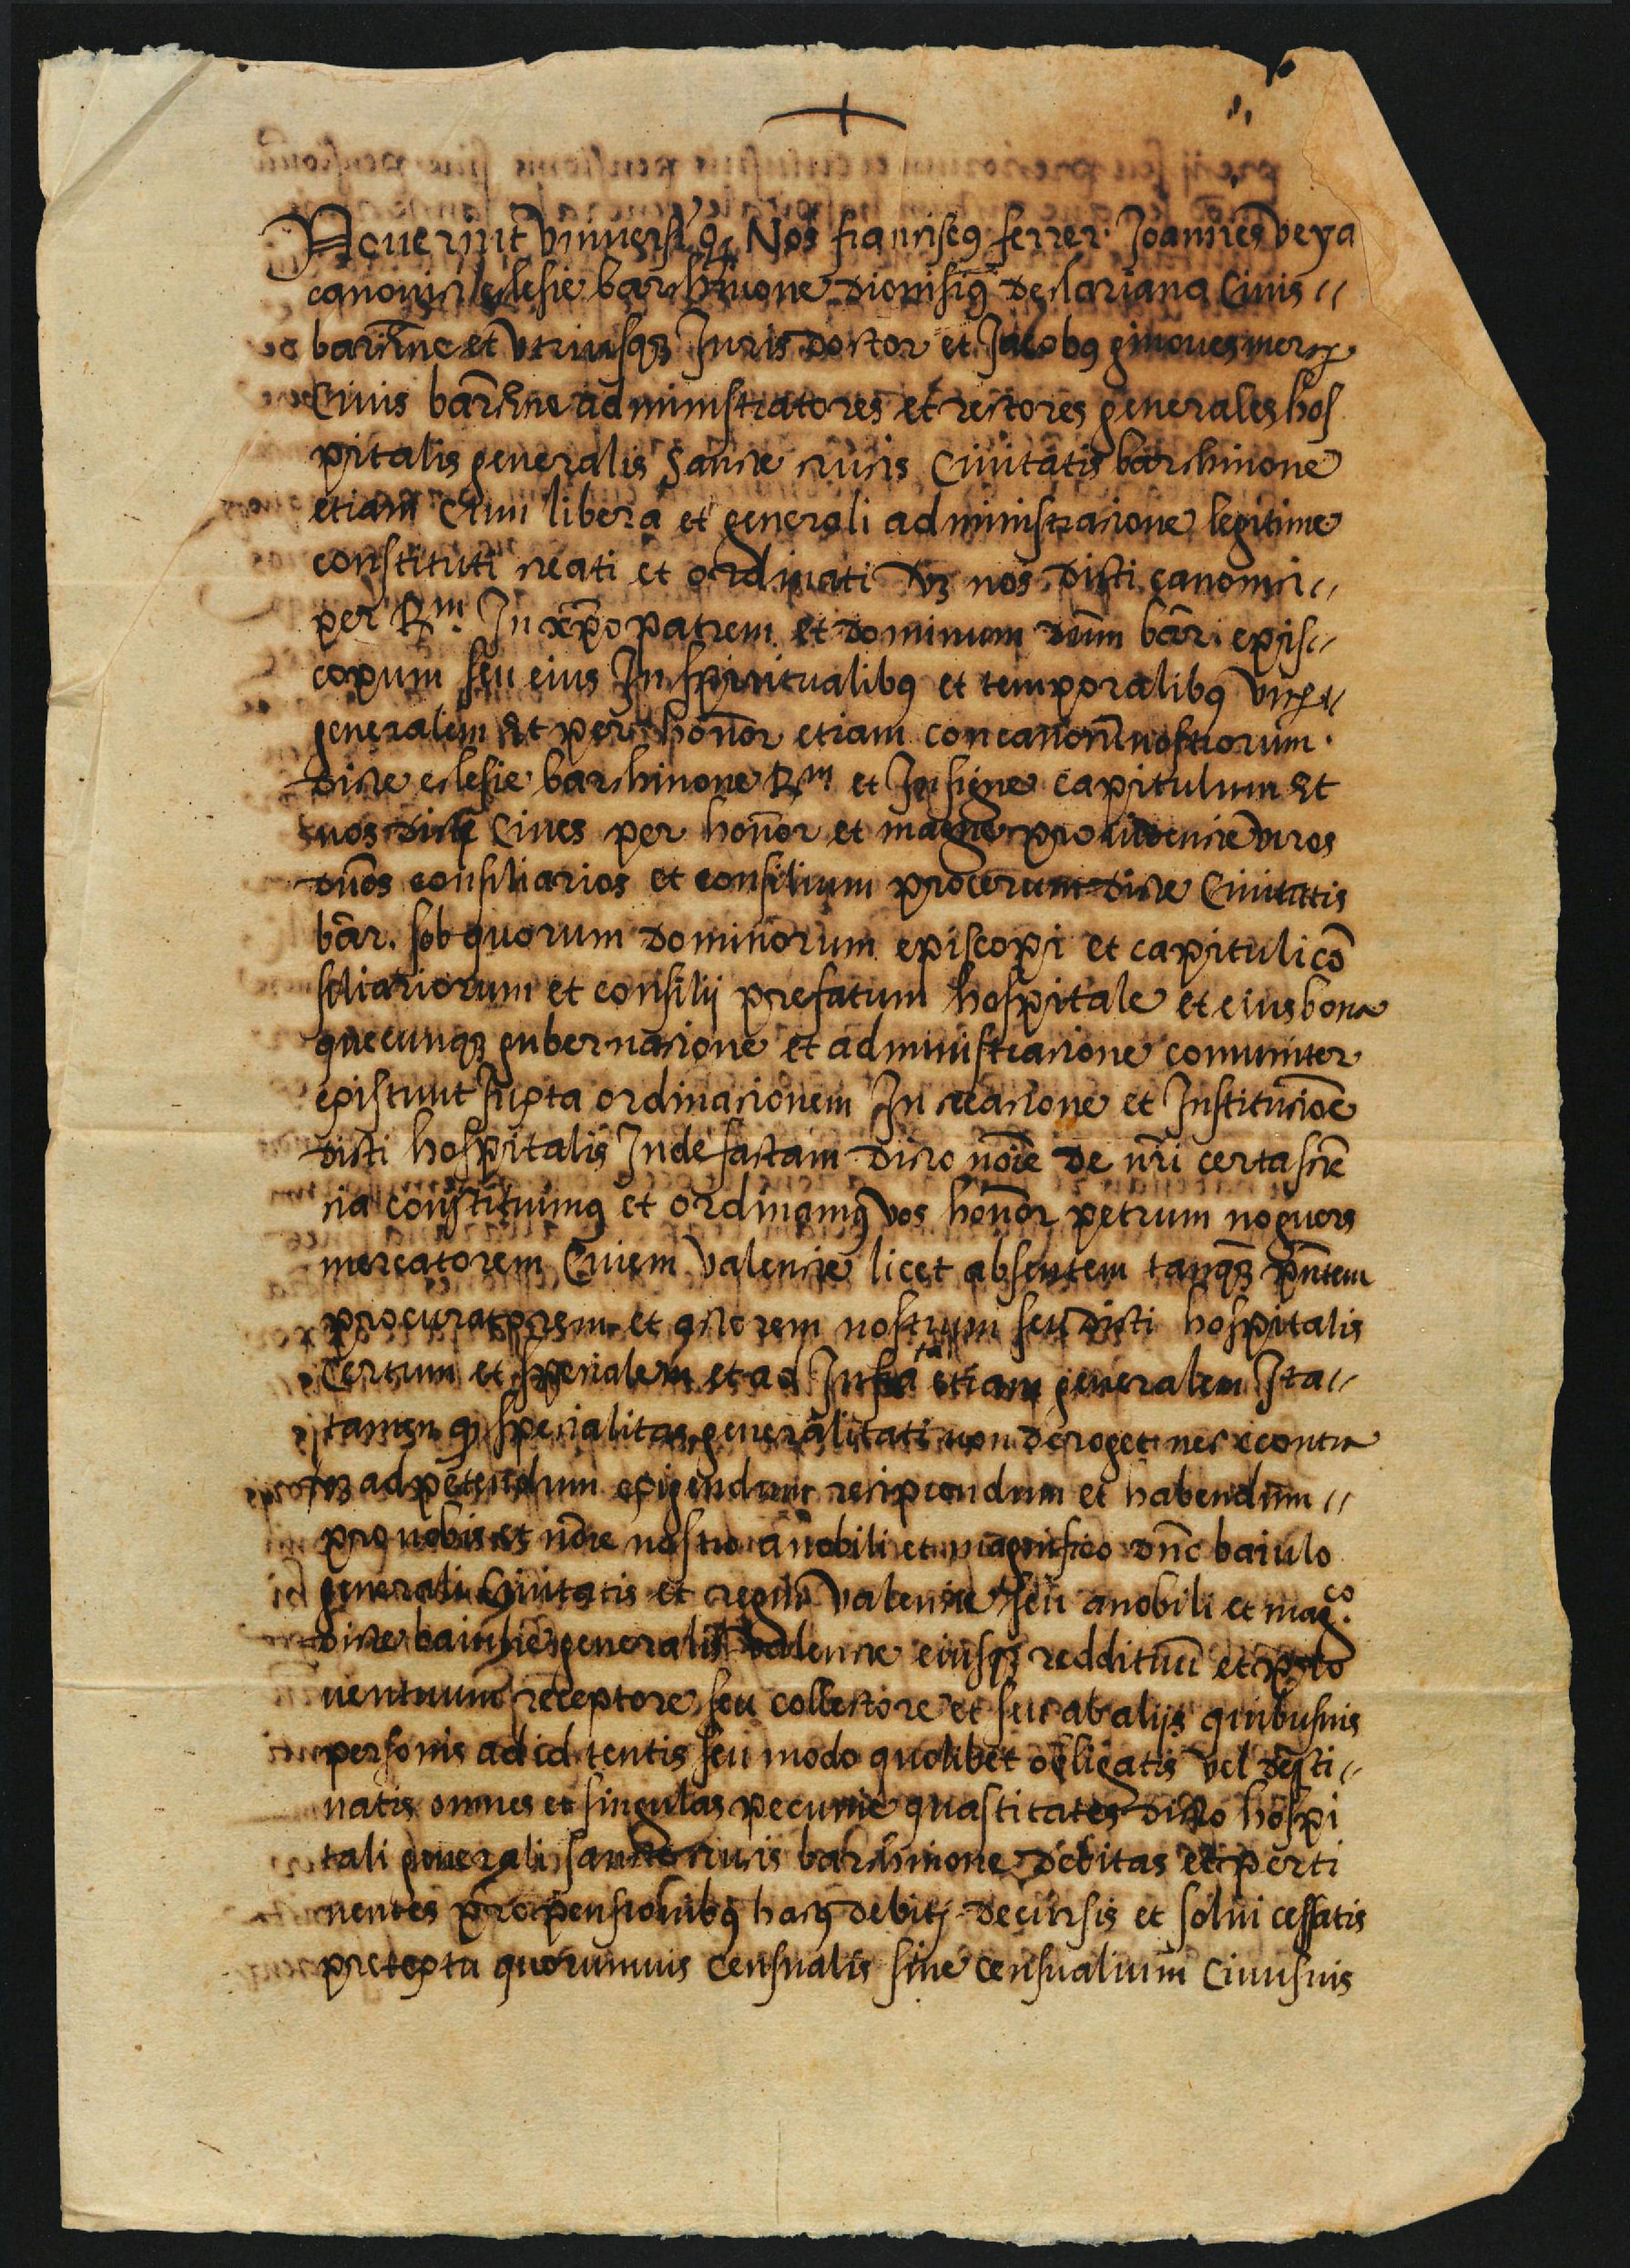 Noverint universi q Nos franciscus ferrer. Joannes veya
canonici eclesie barchinone dionisius declariana Civis
barchine et utriusqz Juris doctor et Jacobus ginoves merx
Civis barchine administratores et rectores generales hos
pitalis generalis Sancte crucis Civitatis barchinone
etiam Cum libera et generali administracione legitime
constituti creati et ordinati vz nos dicti canonici
per Rm. In xpo patrem et dominum dnm bar. epis
copum seu eius In spiritualibus et temporalibus
generalem Et per honor etiam concanonicorum nostrorum.
dicte eclesie barchinone Rm et Insigne capitulum Et
nos dicti Cives per honor et magne providencie viros
dnos consiliarios et consilium procerum dicte Civitatis
bar. sob quorum dominorum episcopi et capituli co
siliariorum et consilij prefatum hospitale et eius bona
quecunqz gubernacione et administracione comuniter
existunt Juxta ordinacionem In creacione et Institucioe
dicti hospitalis Inde factam dicto noie de nri certa scie
cia constituimus et ordinamus vos honor petrum noguers
mercatorem Civem valencie licet absentem tanqz pntem
procuratorem et actorem nostrum seu dicti hospitalis
Certum et specialem et ad Infra ta etiam generalem Ita
tamen q specialitas generalitati non deroget nec econtra
vz ad petendum exigendum recipiendum et habendum
pro nobis et noie nostro a nobili et magnifico dno baiulo
generali Civitatis et regni valencie seu a nobili et mag.co
dicte baiulie generalis valencie eiusqz reddituum et pro
ventuum receptore seu collectore et seu ab alijs quibusvis
personis ad id tentis seu modo quolibet obligatis vel desti
natis omnes et singulas pecunie quantitates dicto hospi
tali generali sancte crucis barchinone debitas et perti
nentes pro pensionibus hactus debitis decursis et solvi cessatis
pretextu quorumvis censualis sive censualium Cuiusvis